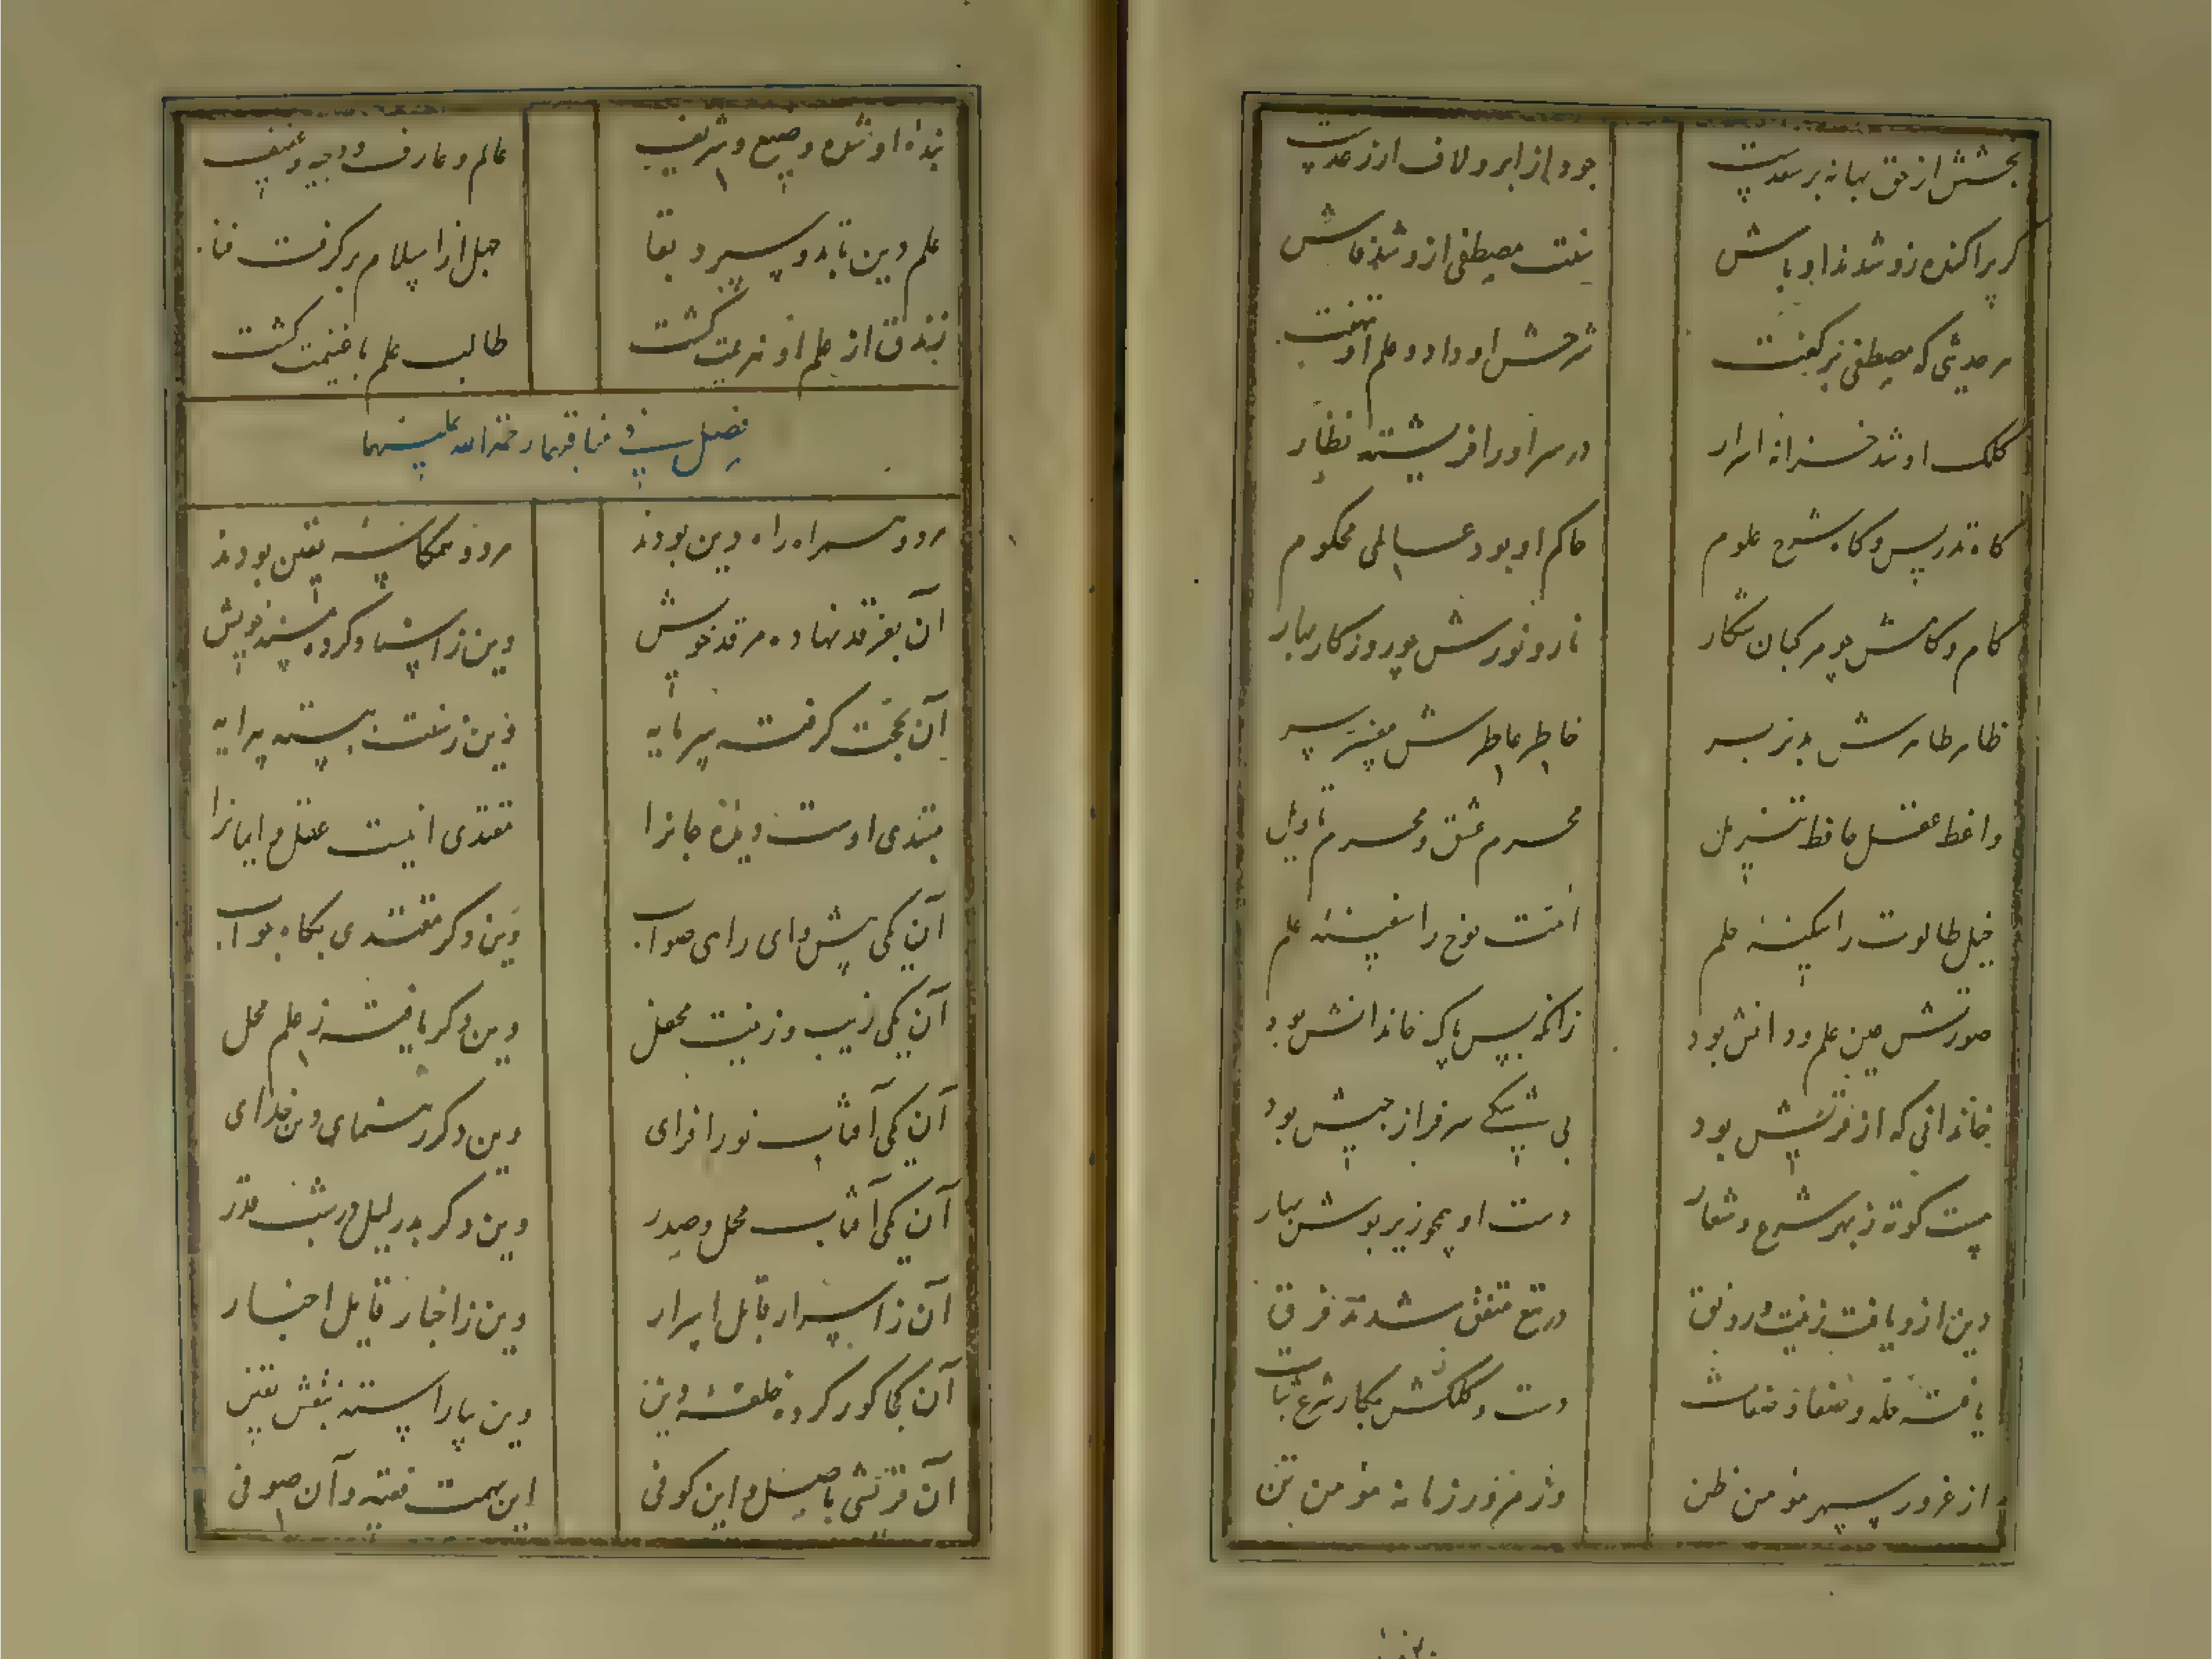 بخشش از حق بهانه بر سعدست جود از ابر و لاف از رعدست
گر پراکنده زو شدند اوباش سنت مصطفی ازو شد فاش
هر حدیثی که مصطفی بر گفت شرحش او داد و علم او
کلک او شد خزانهٔ اسرار در سر او را فریشته نظار
گاه تدریس و گاه شرح علوم حاکم او بود عالمی محکوم
کام و کامش چو مرکبان شکار نار و نورش چو روزگار بهار
ظاهر طاهرش مدبر بر خاطر عاطرش مفسر سر
واعظ عقل حافظ تنزیل محرم عشق و محرم تاویل
خیل طالوت را سکینهٔ حلم امت نوح را سفینهٔ علم
صورتش عین علم و دانش بود زانکه بس پاک خاندانش بود
خاندانی که از قریش بود بی شکی سرفراز جیش بود
هست کوته ز بهر شرع و شعار دست او همچو زیر پوش بهار
دین ازو یافت زینت و رونق در تبع متفق شده فرق
یافته فقه و فقها دست و کلکش بکار شرع ثبات
از غرور سپهر مومن ظن وز فزور زمانه مومن تن
بنده او شده وضیع و شریف عالم و عارف و وجیه و عفیف
علم دین تا بدو سپرد بقا جهل از اسلام بر گرفت فنا
زندق از علم او هزیمت گشت طالب علم با غنیمت گشت
فصل فی مناقبهما رحمة الله علیهما
هر دو همراه راه دین بودند هر دو همکاسهٔ یقین بودند
آن بفرقد نهاده مرقد خویش وین ز اسناد کرده مسند خویش
آن بحجت گرفته سرمایه وین ز سنت ببسته پیرایه
مبتدی اوست دیدهٔ جانرا مقتدی اینت عقل و ایمانرا
آن یکی پیشوای رای صواب وین دگر مقتدی بگاه جواب
آن یکی زیب و زینت محفل وین دگر یافته ز علم محل
آن یکی آفتاب نور افزای وین دگر رهنمای دین خدای
آن یکی آفتاب محفل و صدر وین دگر بدر لیل در شب قدر
آن ز اسرار قابل ابرار وین ز اخبار قایل اخیار
آن بجا کور کرده خلقهٔ دین وین بیاراسته بنقش یقین
آن قرشی باصل و این کوفی این بهمت فقیه و آن صوفی